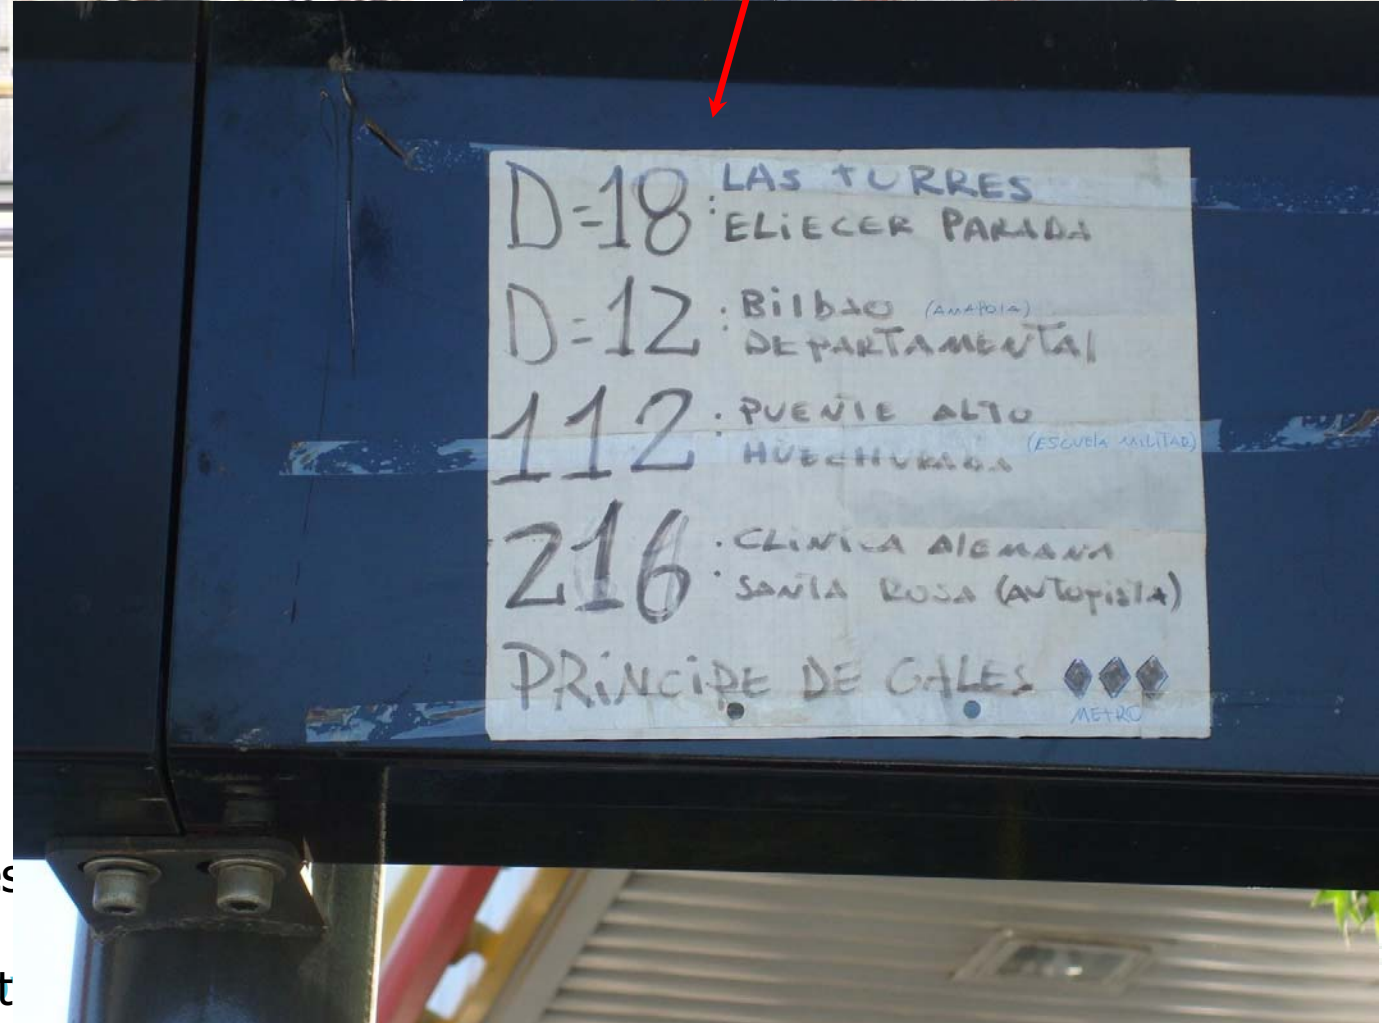 D=18 : LAS TURRES
ELIECER PARADA
D=12 : Bilbao (AMAPOlA)
DEPARTAMENTAl
112 : PUENTE ALTO
HUECHURABA (ESCUElA MILITAR)
216 : CLINICA AlEMANA
SANTA ROSA (AUTOPISTA)
PRiNCiPE DE GALES
METRO
es
t